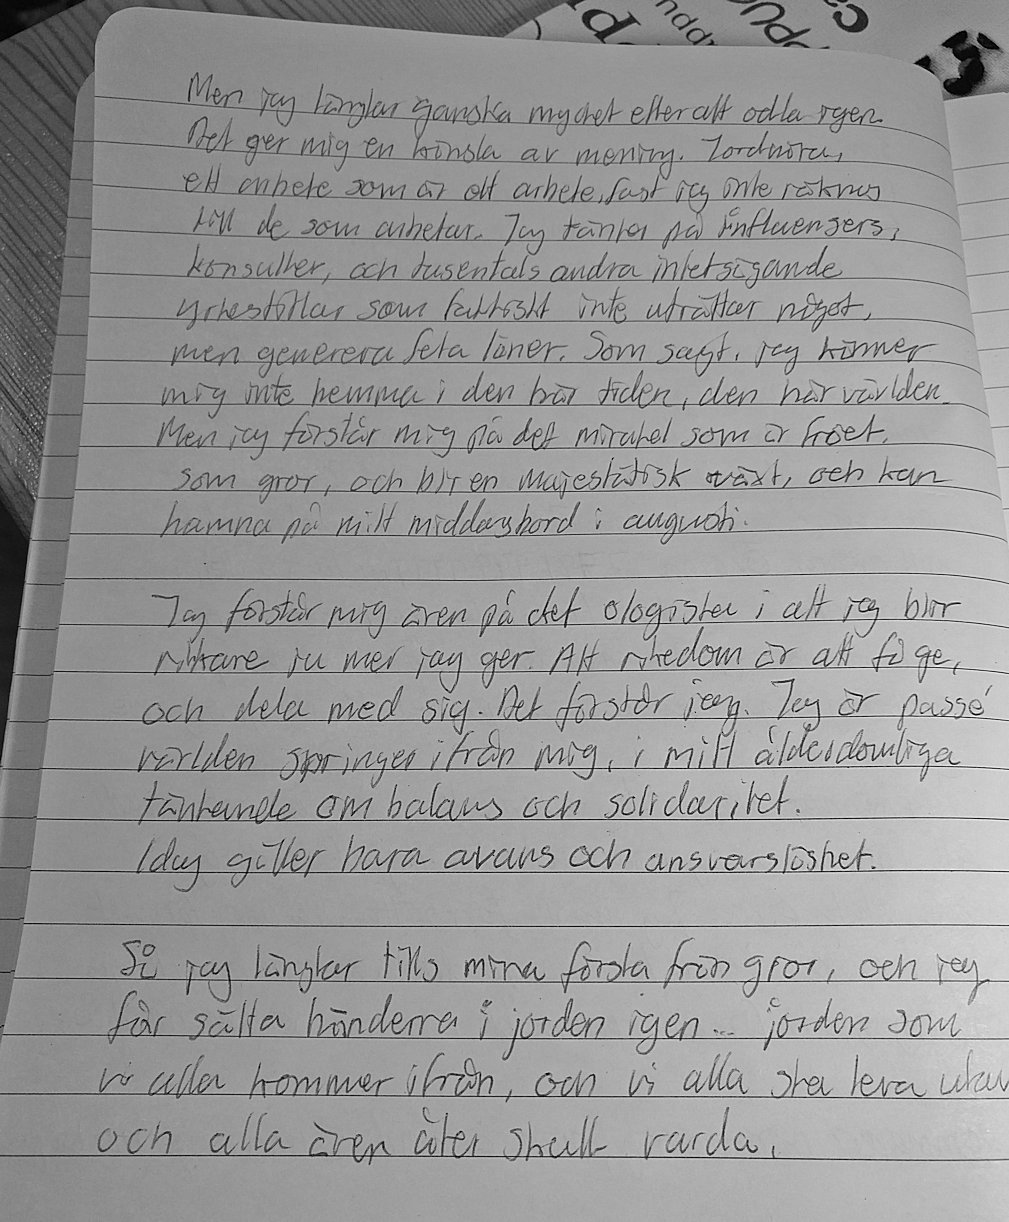 Men jag längtar ganska mycket efter att odla igen.
Det ger mig en känsla av mening. Jordnära,
ett arbete som är ett arbete, fast jag inte räknas
till de som arbetar. Jag tänker på influensers,
konsulter, och tusentals andra intetsigande
yrkestitlar som faktiskt inte uträttar något,
men generera feta löner. Som sagt, jag känner
mig inte hemma i den här tiden, den här världen.
Men jag förstår mig på det mirakel som är fröet,
som gror, och blir en majestätisk växt, och kan
hamna på mitt middagsbord i augusti.
Jag förstår mig även på det ologiska i att jag blir
rikare ju mer jag ger. Att rikedom är att få ge,
och dela med sig. Det förstår jag. Jag är passé
världen springer ifrån mig, i mitt ålderdomliga
tänkande om balans och solidaritet.
Idag gäller bara avans och ansvarslöshet.
Så jag längtar tills mina första frön gror, och jag
får sätta händerna i jorden igen... jorden som
vi alla kommer ifrån, och vi alla ska leva utav
och alla även åter skall varda.